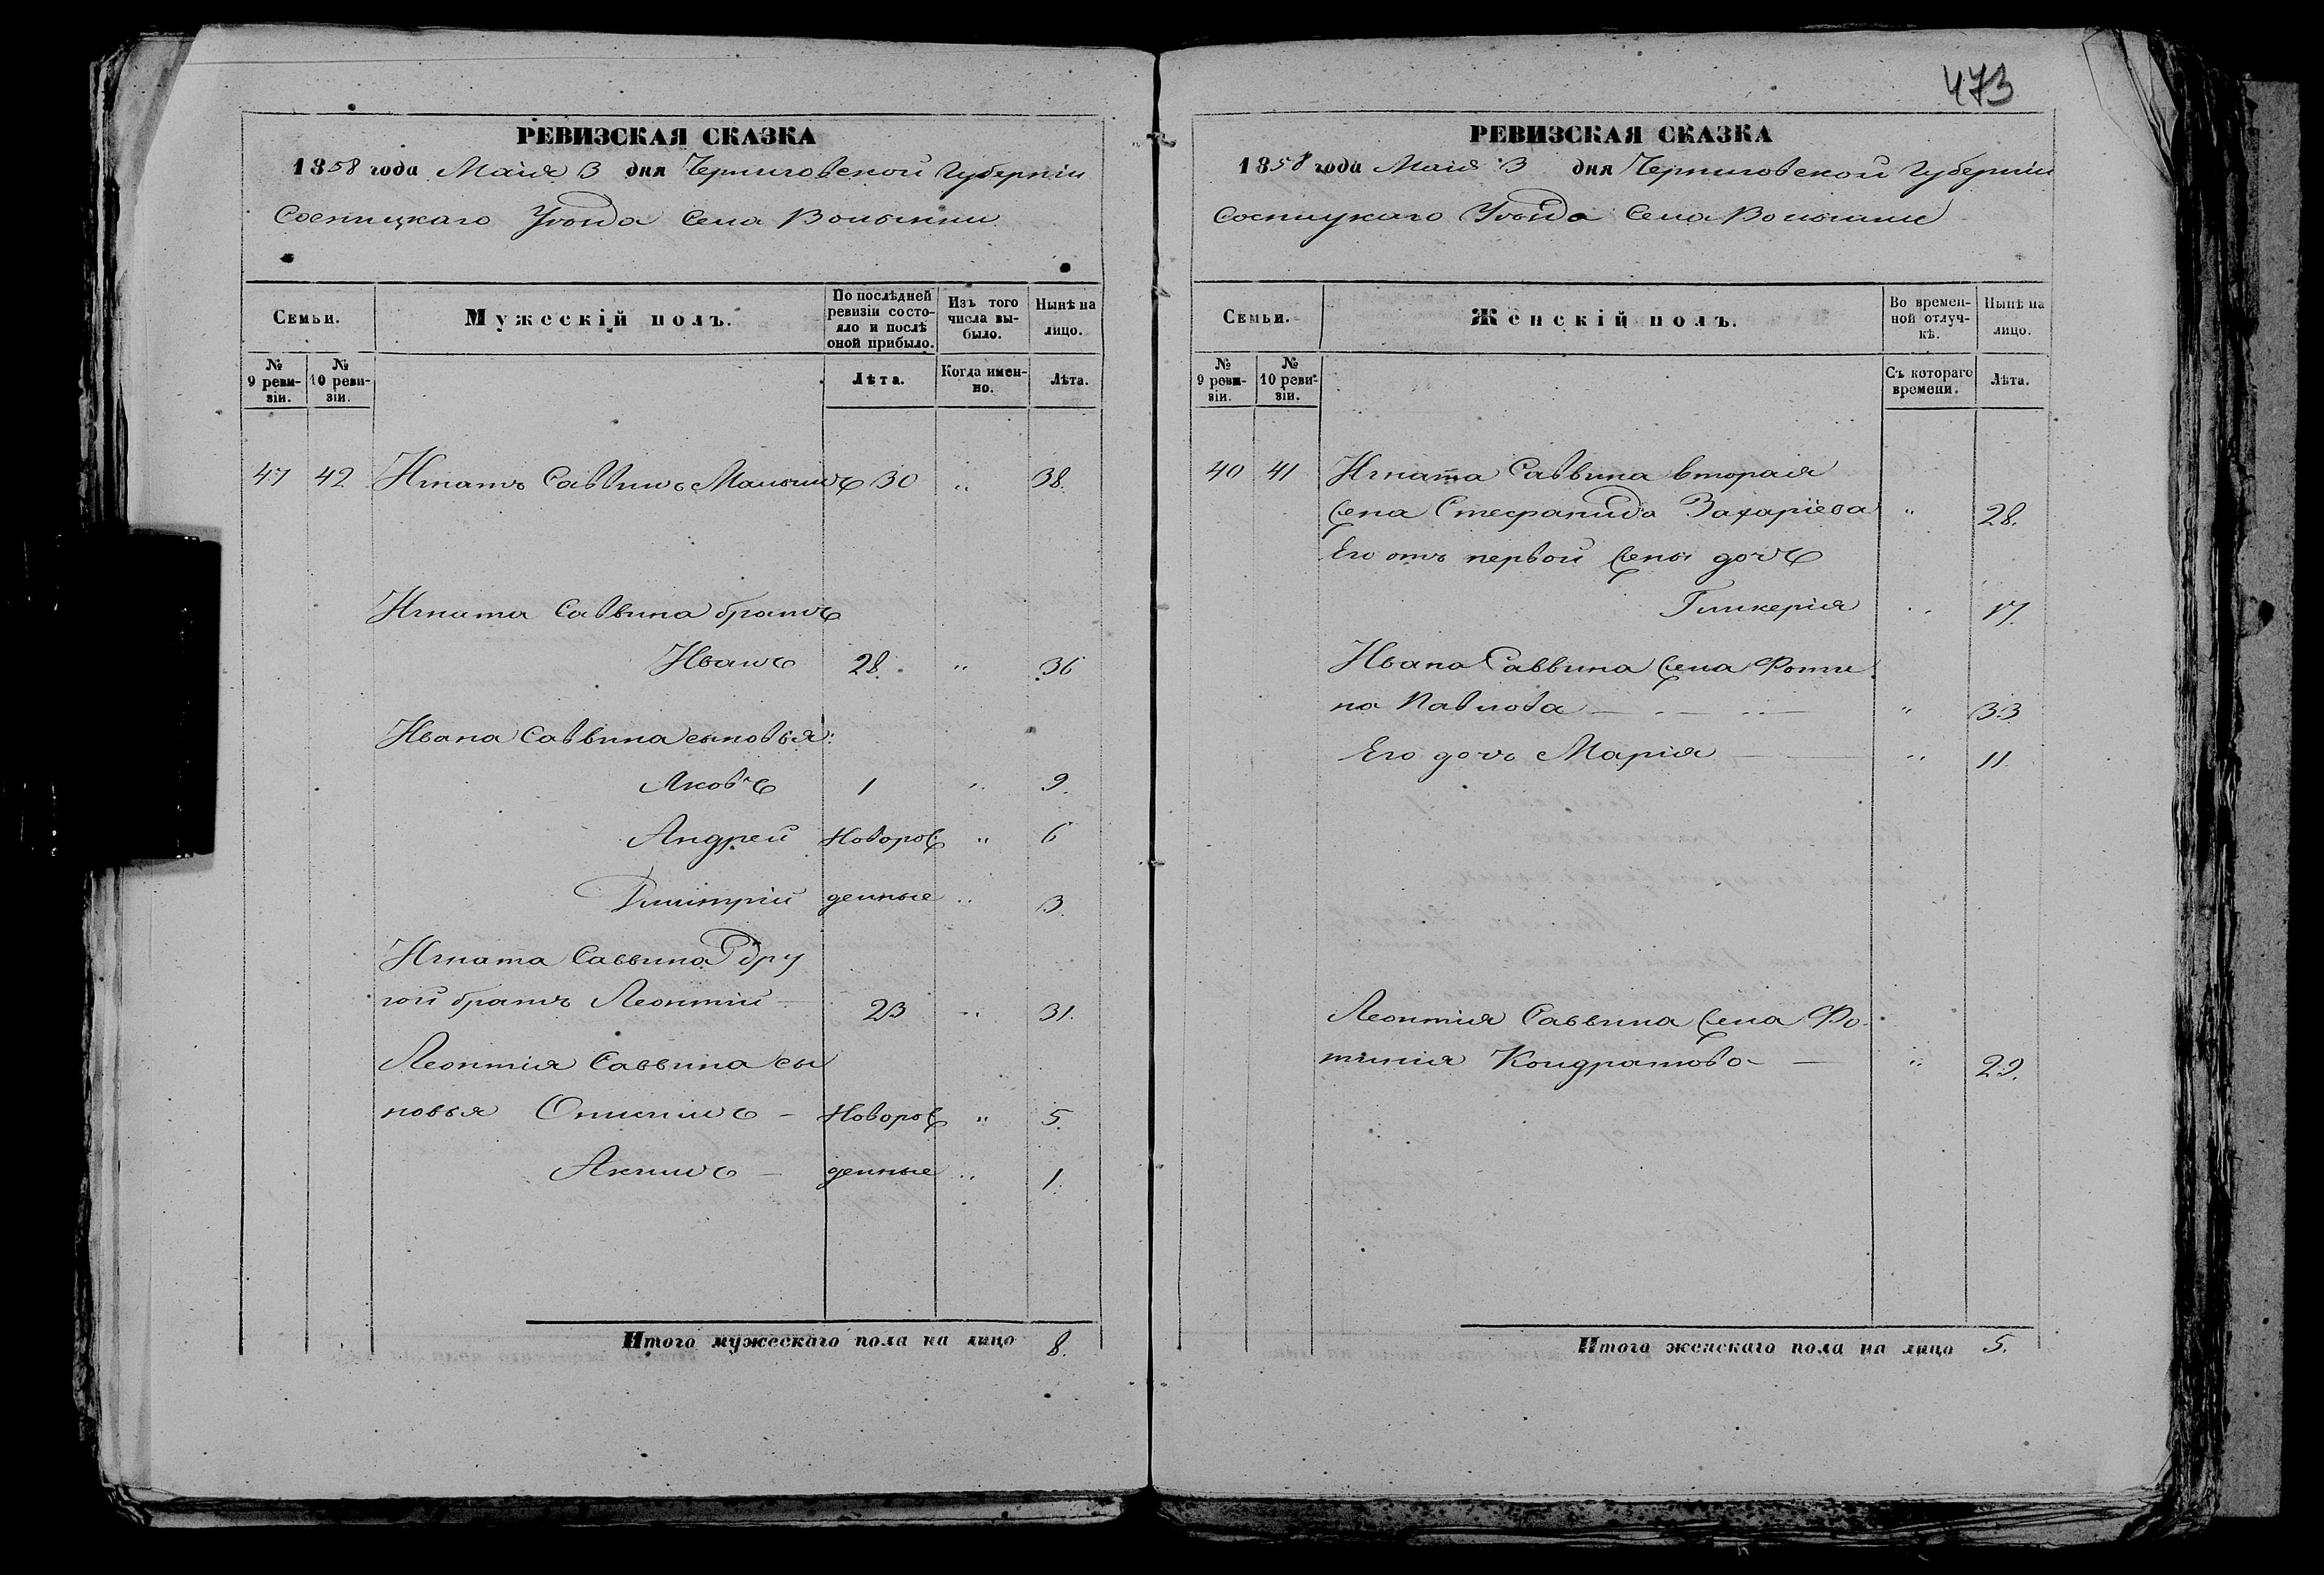 473
РЕВИЗСКАЯ СКАЗКА
1858 года Маія 3 дня Черниговской Губерніи
Сосницкаго Уѣзда Села Волынки
Семьи.
Мужескій полъ.
По послѣдней ревизіи состояло и послѣ оной прибыло.
Изъ того числа выбыло.
Нынѣ на лицо.
№ 9 ревизіи.
№ 10 ревизіи.
Лѣта.
Когда именно.
Лѣта.
47 42 Игнатъ Саввинъ 30 " 38.
Игната Саввина братъ
Иванъ 28. " 36
Ивана Саввина сыновья:
Яковъ 1 " 9.
Андрей Новорож " 6
Дмитрій денные " 3.
Игната Саввина дру
гой братъ Леонтій 23 " 31.
Леонтія Саввина сы
новья Онисимъ - Новорож " 5.
Акимъ - денные " 1.
Итого мужескаго пола на лицо 8.
РЕВИЗСКАЯ СКАЗКА
1858 года Маія 3 дня Черниговской Губерніи
Сосницкаго Уѣзда Села Волынки
Семьи.
Женскій полъ.
Во временной отлучкѣ.
Нынѣ на лицо.
№ 9 ревизіи.
№ 10 ревизіи.
Съ котораго времени.
Лѣта.
40 41 Игната Саввина вторая
жена Стефанида Захаріева " 28.
Его отъ первой жены дочь
Гликерія " 17.
Ивана Саввина жена Фоти
на Павлова " 33
Его дочь Марія " 11.
Леонтія Саввина жена Фо
тинія Кондратова " 29.
Итого женскаго пола на лицо 5.